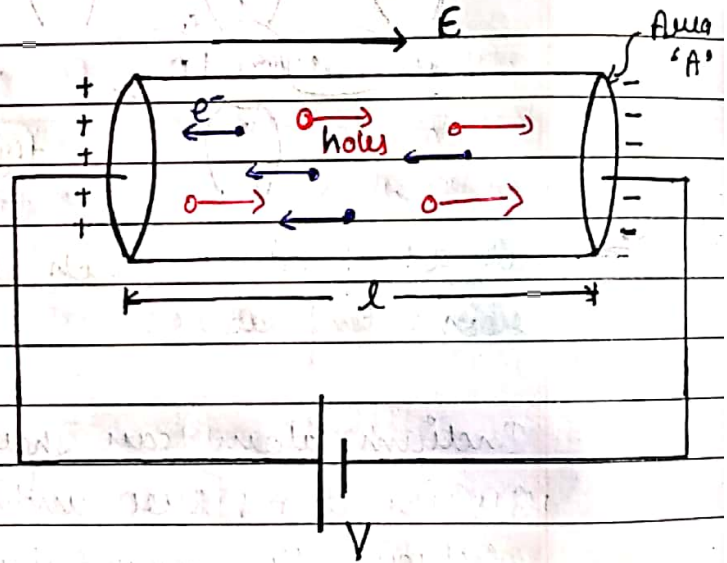 E
Area
'A'
+ + + + +
- - - - -
e⁻
holes
l
V